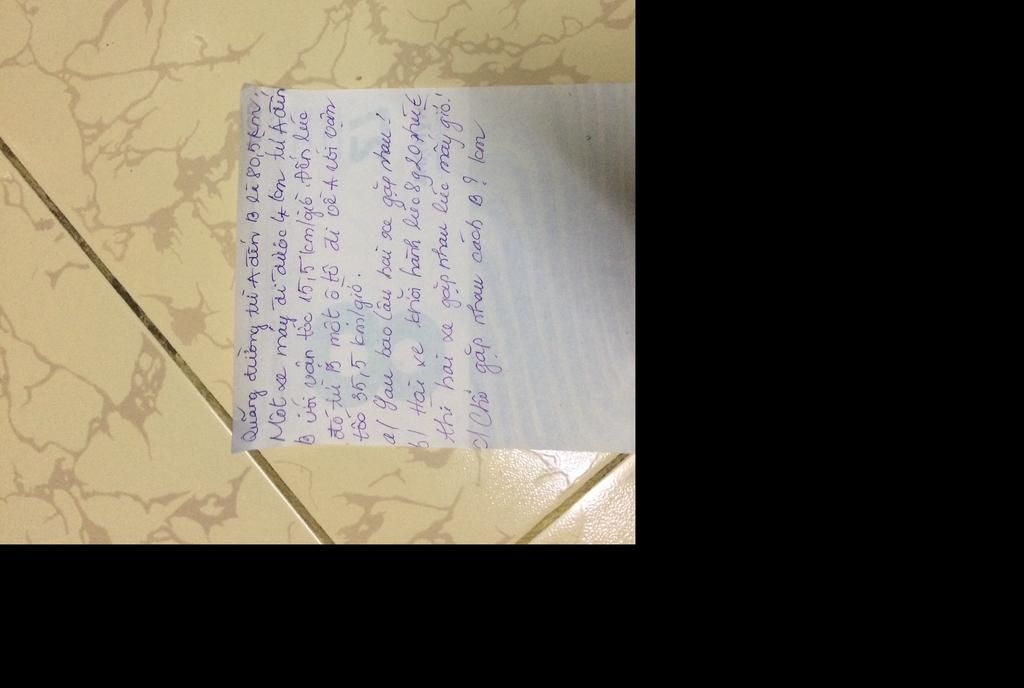 Quãng đường từ A đến B là 80,5 km.
Một xe máy đi được 4 km từ A đến
B với vận tốc 15,5 km/giờ. Đến lúc
đó từ B một ô tô đi về A với vận
tốc 35,5 km/giờ.
a/ Sau bao lâu hai xe gặp nhau!
b/ Hai xe khởi hành lúc 8g20 phút
thì hai xe gặp nhau lúc mấy giờ!
c/ Chỗ gặp nhau cách B? km